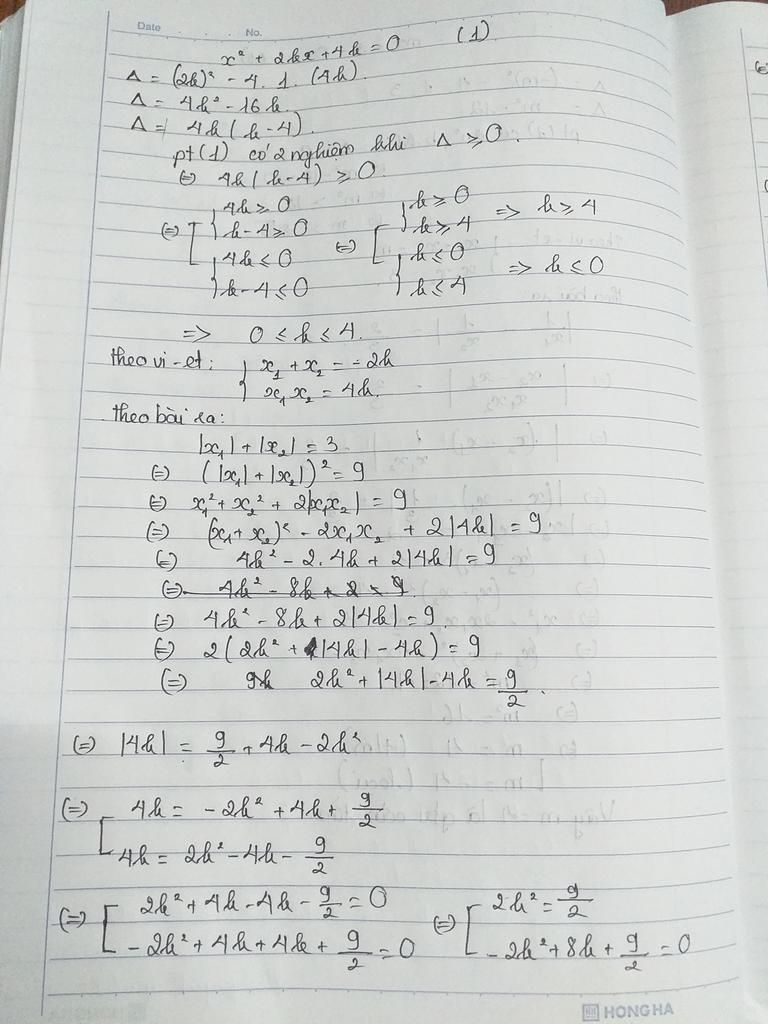 Date No.
x² + 2kx + 4k = 0 (1)
Δ = (2k)² - 4. 1. (4k).
Δ = 4k² - 16k.
Δ = 4k(k-4).
pt(1) có 2 nghiệm khi Δ ≥ 0.
(=) 4k(k-4) ≥ 0.
(=) [ { 4k ≥ 0 (=) [ { k ≥ 0
k-4 ≥ 0 k ≥ 4 => k ≥ 4
{ 4k ≤ 0 { k ≤ 0
k-4 ≤ 0 k ≤ 4 => k ≤ 0
=> 0 ≤ k ≤ 4.
theo vi-et: { x₁ + x₂ = -2k
x₁x₂ = 4k.
theo bài ra:
|x₁| + |x₂| = 3
(=) (|x₁| + |x₂|)² = 9
(=) x₁² + x₂² + 2|x₁x₂| = 9
(=) (x₁+x₂)² - 2x₁x₂ + 2|4k| = 9
(=) 4k² - 2.4k + 2|4k| = 9
(=) 4k² - 8k + 2 × 9
(=) 4k² - 8k + 2|4k| = 9
(=) 2(2k² + |4k| - 4k) = 9
(=) 9k 2k² + |4k| - 4k = 9/2.
(=) |4k| = 9/2 + 4k - 2k²
(=) [ 4k = -2k² + 4k + 9/2
4k = 2k² - 4k - 9/2
(=) [ 2k² + 4k - 4k - 9/2 = 0 (=) [ 2k² = 9/2
-2k² + 4k + 4k + 9/2 = 0 -2k² + 8k + 9/2 = 0
HONG HA